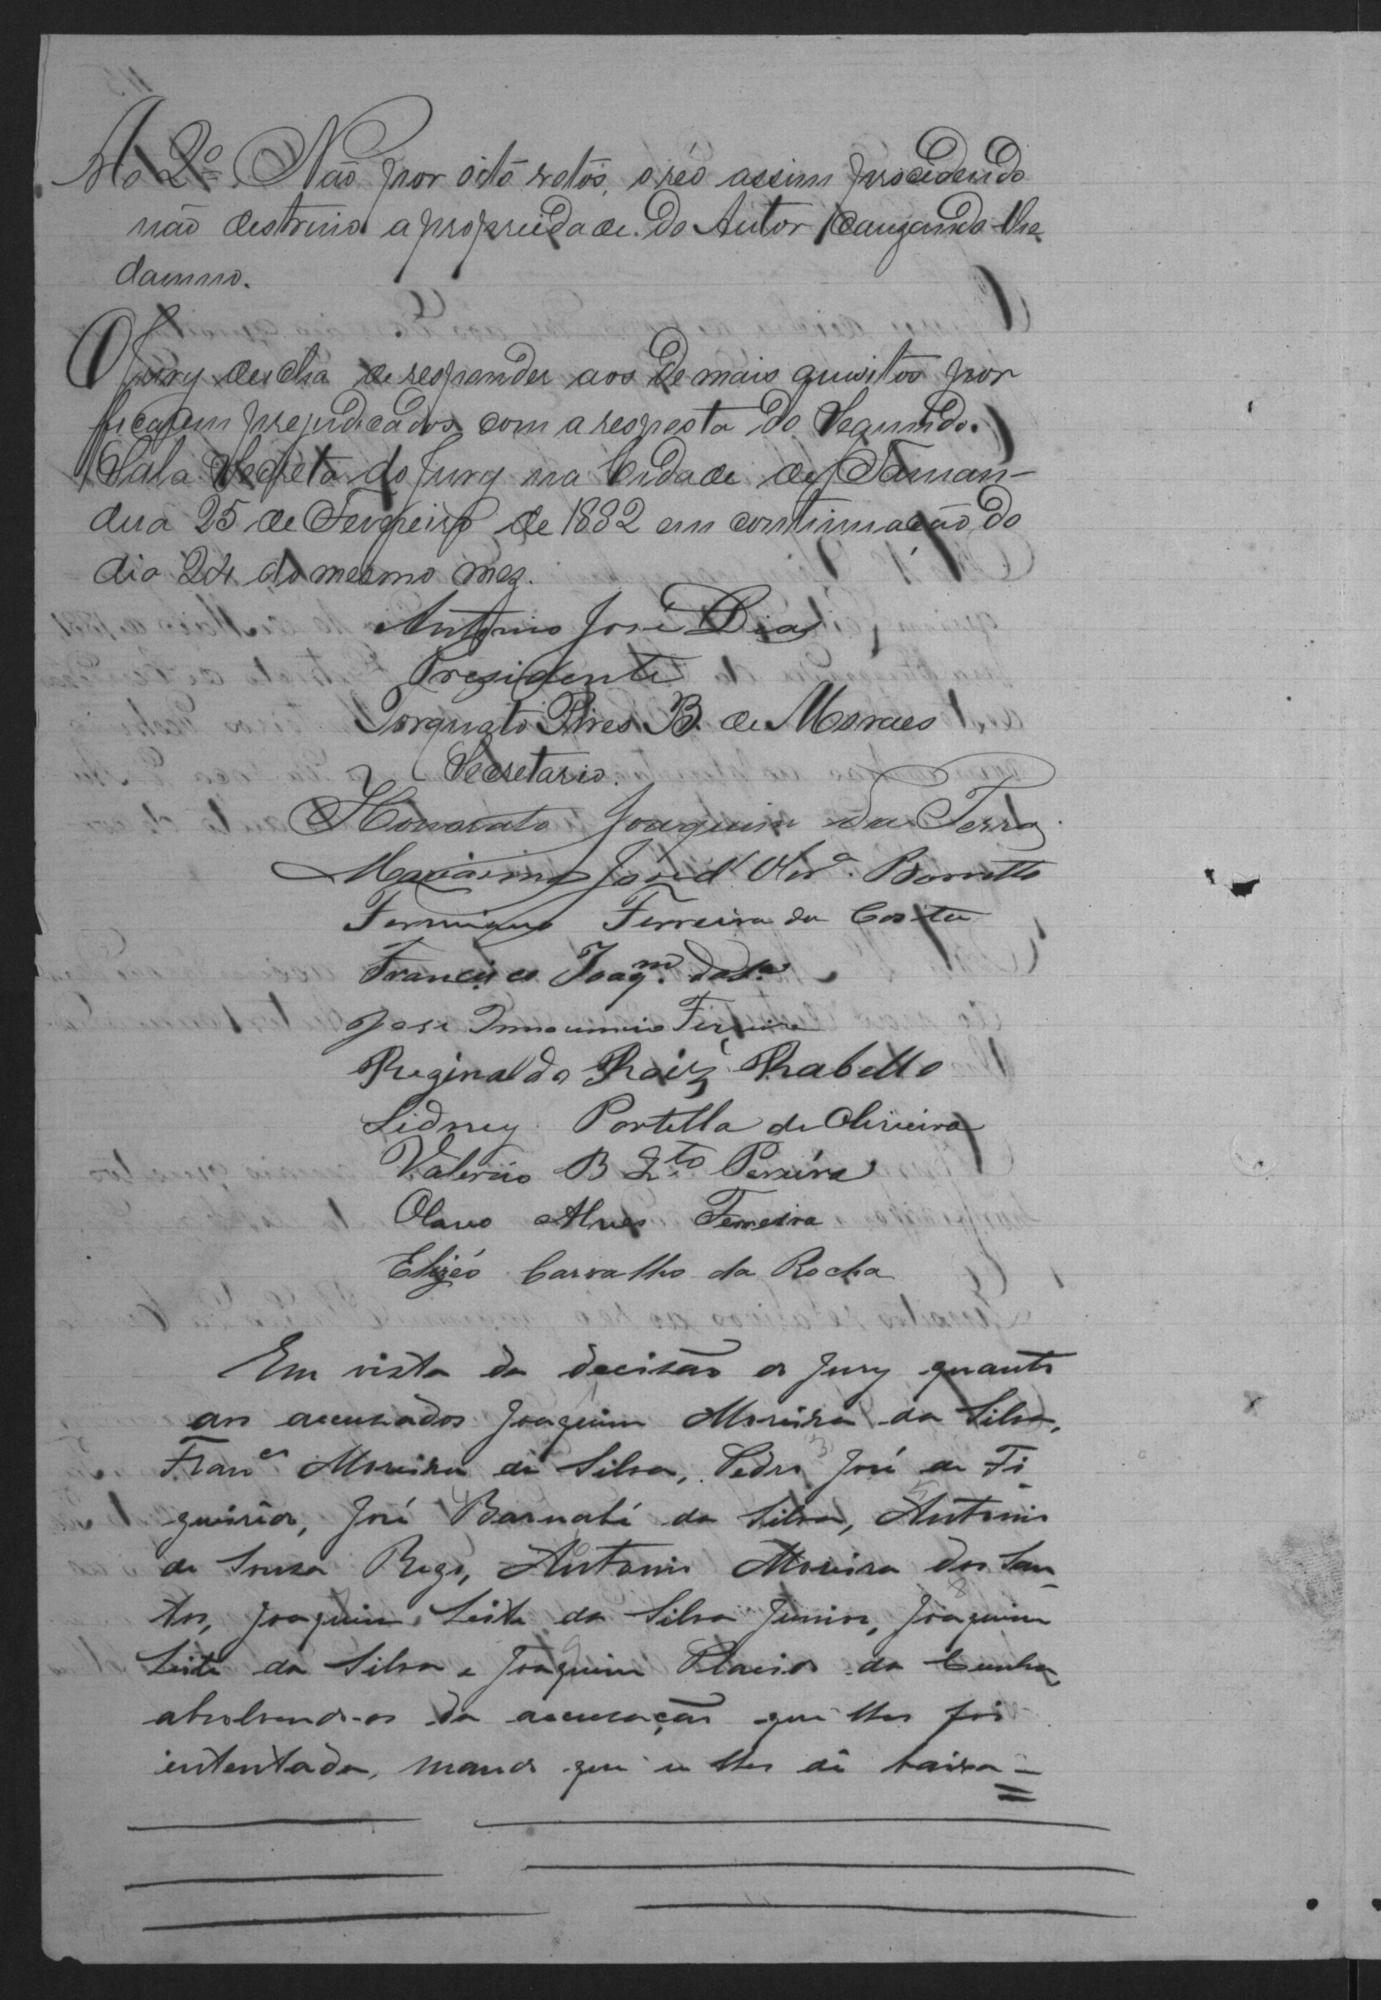 Ao 2º Não por oito votos, o réo assim procedendo
não destruio a propriedade do Autor cauzando-lhe
damno.
O Jury deicha de responder aos de mais quisitos por
ficarem prejudicados com a resposta do Segundo.
Sala Secreta do Jury na Cidade de Taman-
dua 25 de Fevereiro de 1882 em continuação do
dia 24 do mesmo mez.
Antonio José Dias
Presidente
Torquato Pires B. de Moraes
Secretario.
Honorato Joaquim da Terra
Maximo José d' Olivª Barretto
Ferreira da Costa
Francisco Joaqm da Sª
José Innocencio Ferreira
Reginaldo Roiz Rabello
Sidney Portella de Oliveira
Valerio B Pereira
Olavo Alves Ferreira
Elizéo Carvalho da Rocha
Em vista da decisão do Jury quanto
aos accusados Joaquim Moreira da Silva,
Franco Moreira da Silva, Pedro José de Fi-
gueirêdo, José Barnabé da Silva, Antonio
de Souza Rego, Antonio Moreira dos San-
tos, Joaquim Leite da Silva Junior, Joaquim
Leite da Silva e Joaquim Placido da Cunha,
absolvendo-os da accusação que lhes foi
intentada, mando que se lhes dê baixa